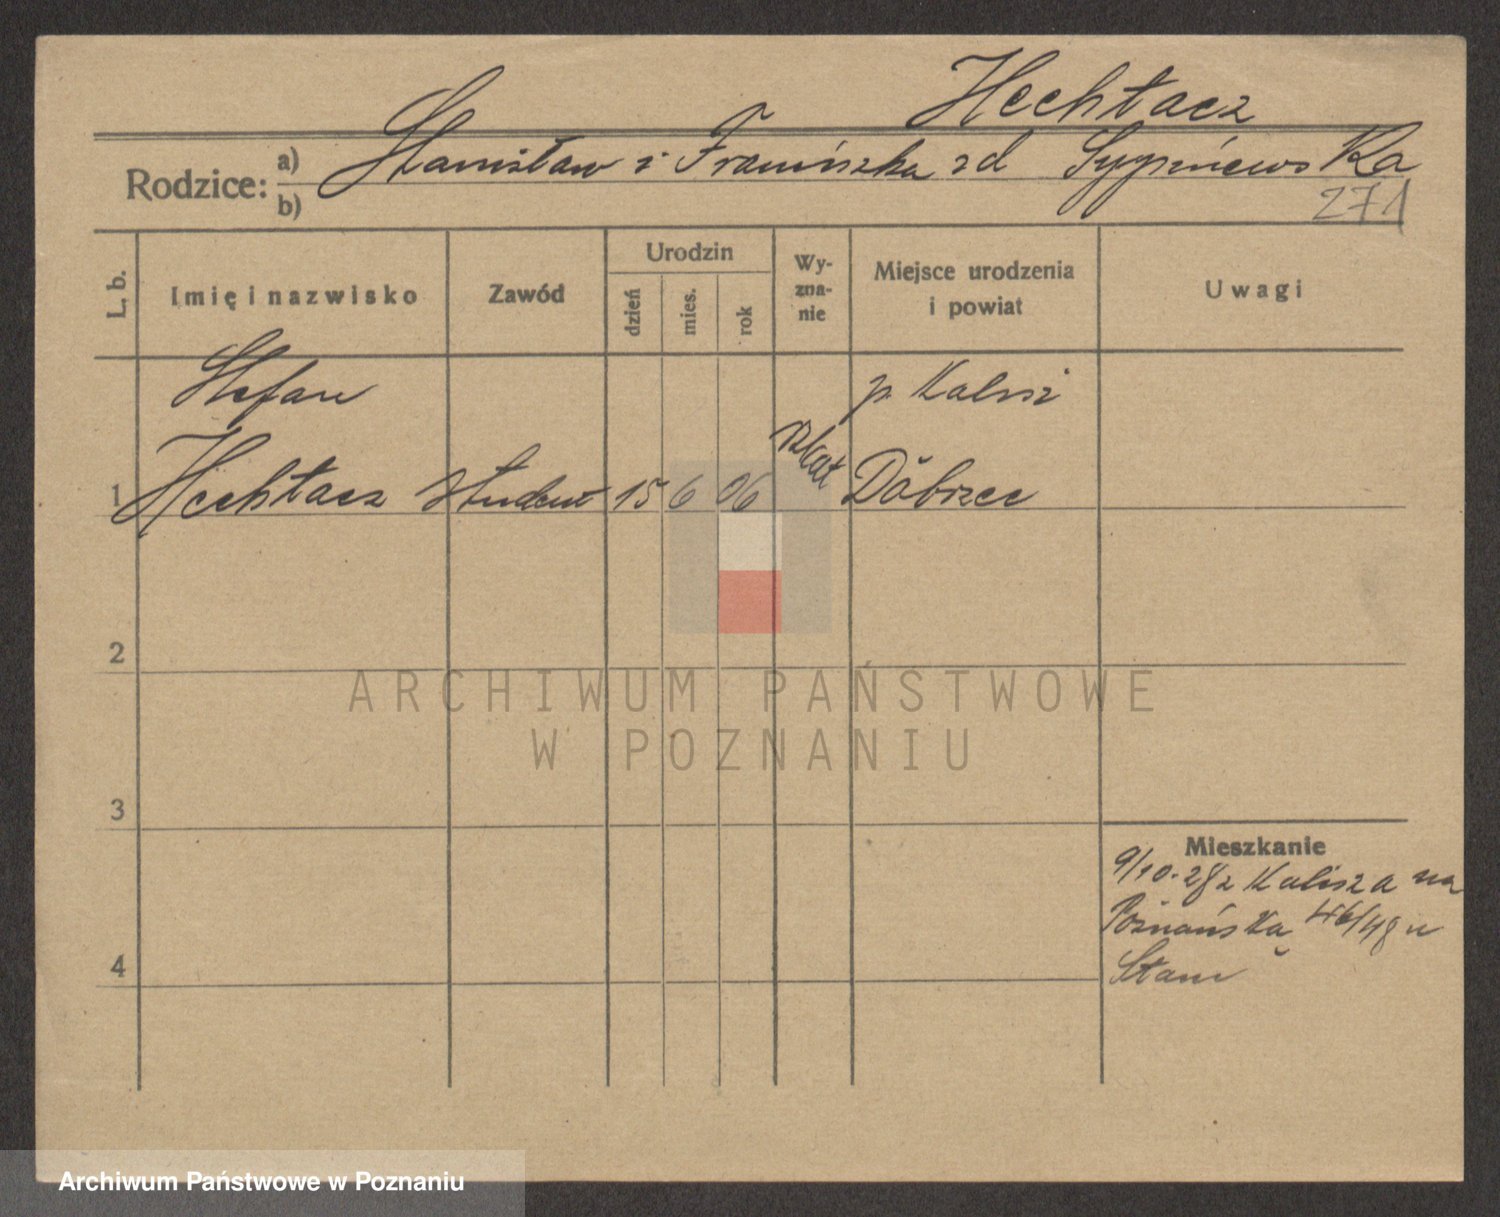 Hechłacz
Rodzice: a) Stanisław i Franciszka zd
b)
271
L. b.
Imię i nazwisko
Zawód
Urodzin
dzień
mies.
rok
Wy-
zna-
nie
Miejsce urodzenia
i powiat
Uwagi
Stefan
p. Kalisz
1 Hechłacz student 15 6 06 rzkat Dobrzec
2
3
4
Mieszkanie
9/10.28 z Kalisza na
Poznańska 46/48 u
Stam
ARCHIWUM PAŃSTWOWE
W POZNANIU
Archiwum Państwowe w Poznaniu